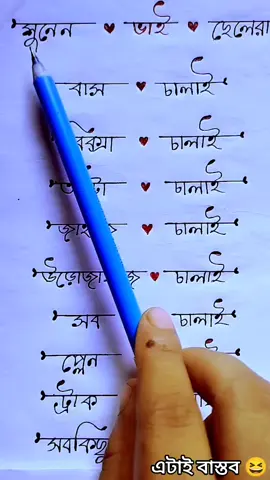 শুনেন ♥ ভাই ♥ ছেলেরা
বাস ♥ চালাই
চালাই
চালাই
চালাই
উড়োজাহাজ ♥ চালাই
সব চালাই
প্লেন
ট্রাক
সবকিছু
এটাই বাস্তব 😆